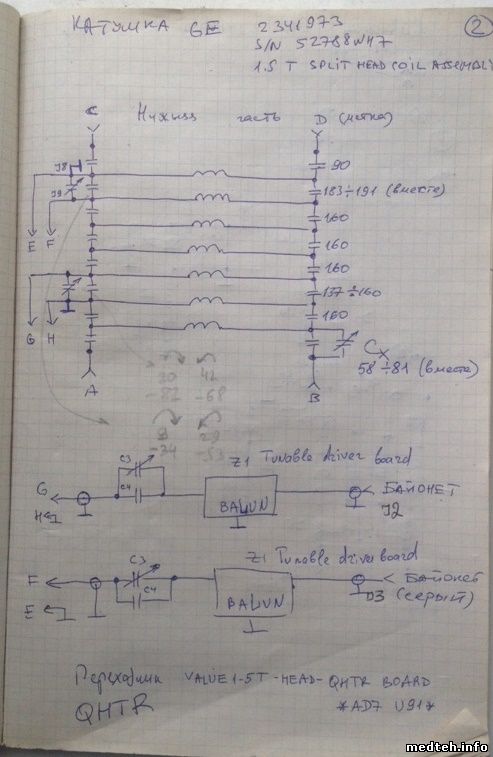 КАТУШКА GE 2341973
2
S/N 52788WH7
1.5 T SPLIT HEAD COIL ASSEMBLY
C Нижняя часть D (метка)
J8
90
J9
183÷191 (вместе)
160
E F
160
160
137÷160
G H
160
Cx
58÷81 (вместе)
A B
20 42
-82 -68
9 29
-24 -53
Z1 Tunable driver board
C3
G C4 BALUN БАЙОНЕТ
H J2
Z1 Tunable driver board
C3
F C4 BALUN БАЙОНЕТ
E J3 (серый)
Переходник VALUE 1-5T-HEAD-QHTR BOARD
QHTR *AD7 U91*
medteh.info